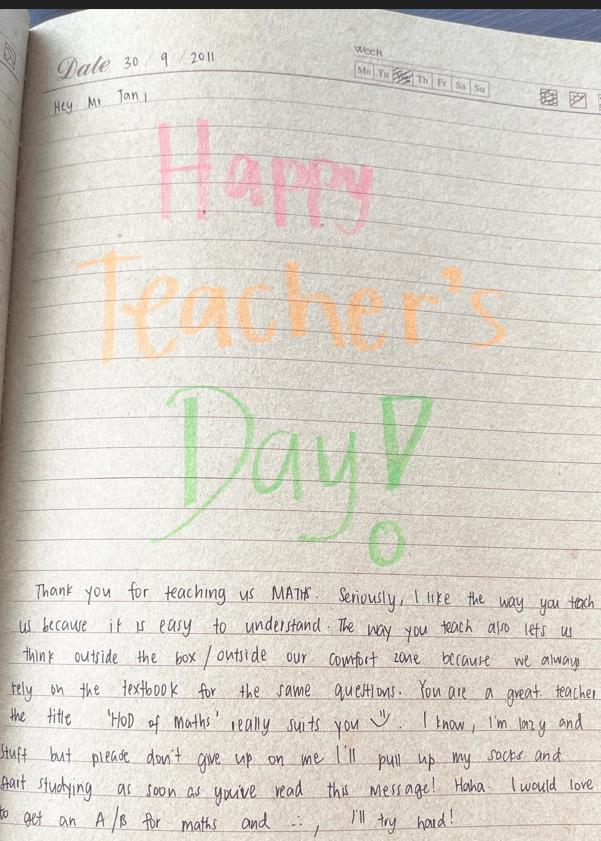 Date 30 / 9 / 2011
Week
Mo Tu Th Fr Sa Su
Hey Mr Tan,
Happy
Teacher's
Day!
Thank you for teaching us MATHS. Seriously, I like the way you teach
us because it is easy to understand. The way you teach also lets us
think outside the box / outside our comfort zone because we always
rely on the textbook for the same questions. You are a great teacher
the title 'HOD of Maths' really suits you . I know, I'm lazy and
stuff but please don't give up on me I'll pull up my socks and
start studying as soon as you've read this message! Haha. I would love
to get an A/B for maths and ∴, I'll try hard!